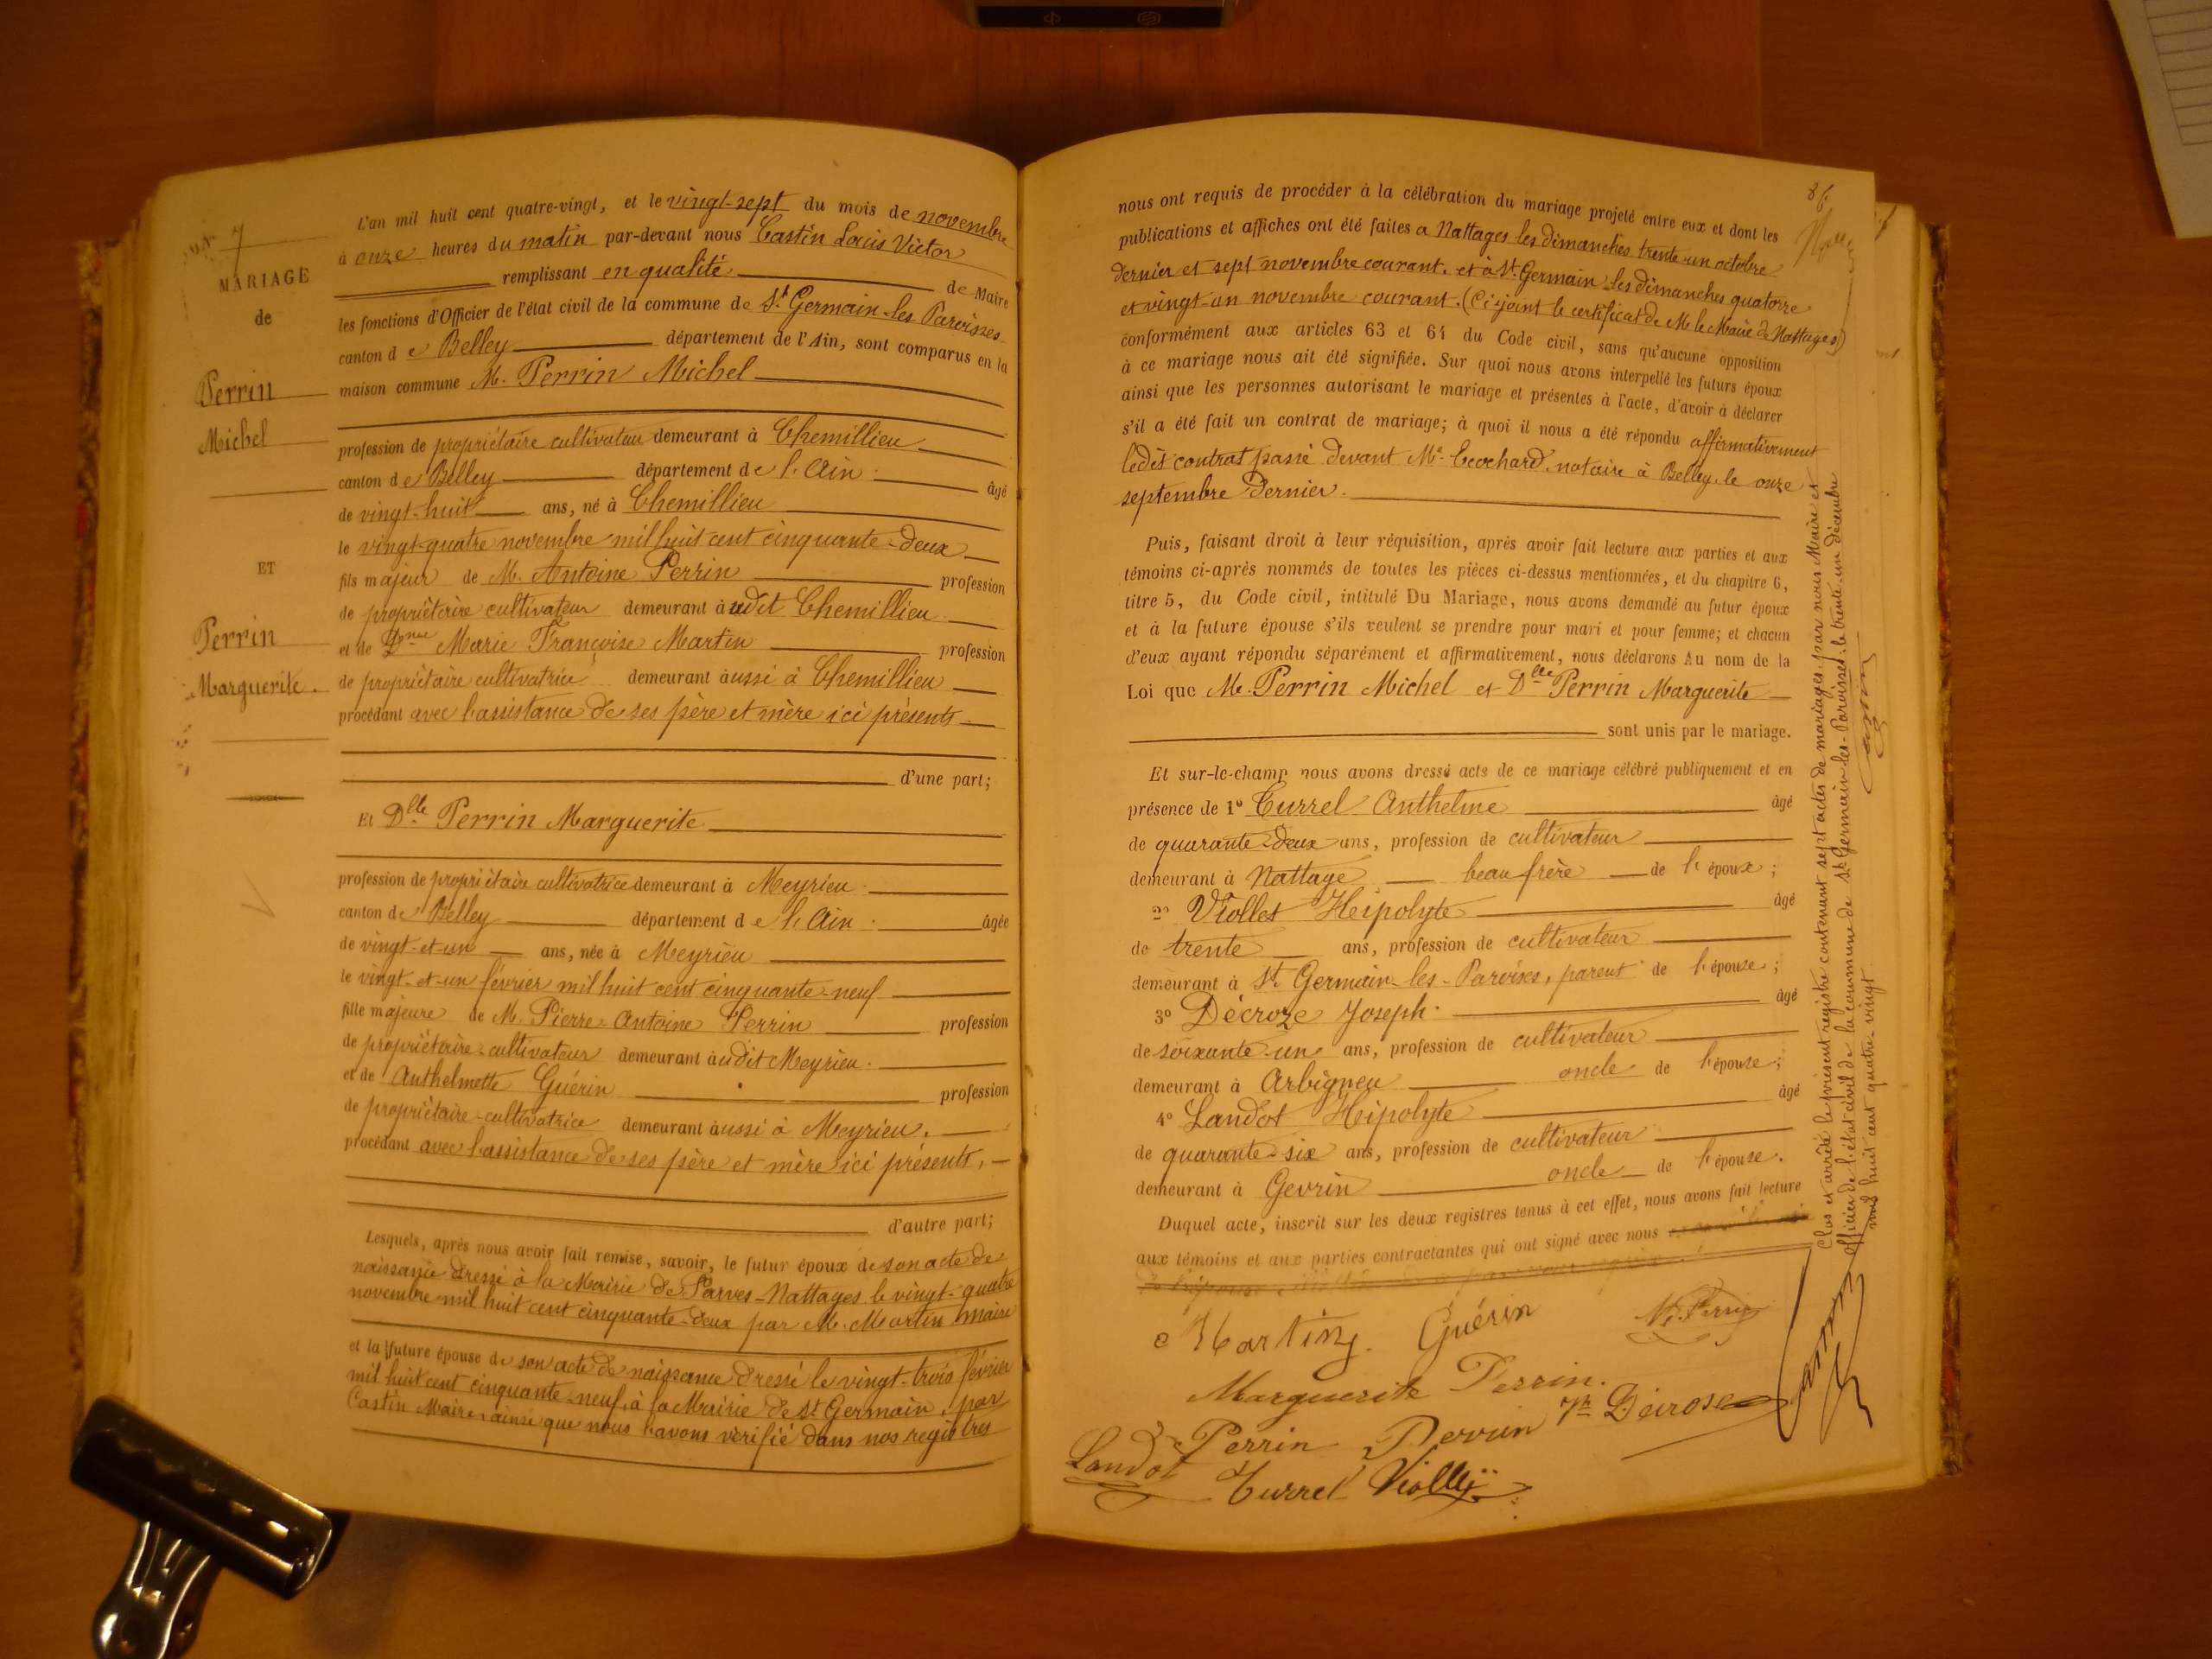 7
MARIAGE
de
Perrin
Michel
ET
Perrin
Marguerite.
L'an mil huit cent quatre-vingt, et le vingt-sept du mois de novembre
à onze heures du matin par-devant nous Castin Louis Victor
remplissant en qualité de Maire
les fonctions d'Officier de l'état civil de la commune de St Germain-les Paroisses
canton de Belley département de l'Ain, sont comparus en la
maison commune M. Perrin Michel
profession de propriétaire cultivateur demeurant à Chemillieu
canton de Belley département de l'Ain. âgé
de vingt-huit ans, né à Chemillieu
le vingt-quatre novembre mil huit cent cinquante-deux
fils majeur de M. Antoine Perrin profession
de propriétaire cultivateur demeurant audit Chemillieu
et de Dme Marie Françoise Martin profession
de propriétaire cultivatrice demeurant aussi à Chemillieu
procédant avec l'assistance de ses père et mère ici présents
d'une part;
Et Dlle Perrin Marguerite
profession de propriétaire cultivatrice demeurant à Meyrieu.
canton de Belley département de l'Ain. âgée
de vingt-et-un ans, née à Meyrieu
le vingt-et-un février mil huit cent cinquante-neuf
fille majeure de M. Pierre-Antoine Perrin profession
de propriétaire-cultivateur demeurant audit Meyrieu.
et de Anthelmette Guérin profession
de propriétaire-cultivatrice demeurant aussi à Meyrieu.
procédant avec l'assistance de ses père et mère ici présents,
d'autre part;
Lesquels, après nous avoir fait remise, savoir, le futur époux de son acte de
naissance dressé à la Mairie de Parves-Nattages le vingt-quatre
novembre mil huit cent cinquante-deux par M. Martin maire
et la future épouse de son acte de naissance dressé le vingt-trois février
mil huit cent cinquante-neuf, à la Mairie de St Germain, par
Castin Maire, ainsi que nous l'avons vérifié dans nos registres
86
nous ont requis de procéder à la célébration du mariage projeté entre eux et dont les
publications et affiches ont été faites a Nattages les dimanches trente-un octobre
dernier et sept novembre courant. et à St Germain les dimanches quatorze
et vingt-un novembre courant. (Ci-joint le certificat de M. le Maire de Nattages)
conformément aux articles 63 et 64 du Code civil, sans qu'aucune opposition
à ce mariage nous ait été signifiée. Sur quoi nous avons interpellé les futurs époux
ainsi que les personnes autorisant le mariage et présentes à l'acte, d'avoir à déclarer
s'il a été fait un contrat de mariage; à quoi il nous a été répondu affirmativement
ledit contrat passé devant Me notaire à Belley, le onze
septembre dernier.
Puis, faisant droit à leur réquisition, après avoir fait lecture aux parties et aux
témoins ci-après nommés de toutes les pièces ci-dessus mentionnées, et du chapitre 6,
titre 5, du Code civil, intitulé Du Mariage, nous avons demandé au futur époux
et à la future épouse s'ils veulent se prendre pour mari et pour femme; et chacun
d'eux ayant répondu séparément et affirmativement, nous déclarons Au nom de la
Loi que M. Perrin Michel et Dlle Perrin Marguerite
sont unis par le mariage.
Et sur-le-champ nous avons dressé acte de ce mariage célébré publiquement et en
présence de 1° Currel Anthelme âgé
de quarante-deux ans, profession de cultivateur
demeurant à Nattage beau frère de l'époux;
2° Viollet Heipolyte âgé
de trente ans, profession de cultivateur
demeurant à St Germain-les-Paroises, parent de l'épouse;
3° Décroze Joseph. âgé
de soixante-un ans, profession de cultivateur
demeurant à Arbigneu oncle de l'épouse;
4° Landot Hipolyte âgé
de quarante-six ans, profession de cultivateur
demeurant à Gevrin oncle de l'épouse.
Duquel acte, inscrit sur les deux registres tenus à cet effet, nous avons fait lecture
aux témoins et aux parties contractantes qui ont signé avec nous
Martin. Guérin M. Perrin
Marguerite Perrin.
Perrin Perrin
Landot Currel
Clos et arrêté le présent registre contenant sept actes de mariages, par nous Maire et
officier de l'état civil de la commune de St Germain-les-Paroisses, le trente-un décembre
mil huit cent quatre-vingt.